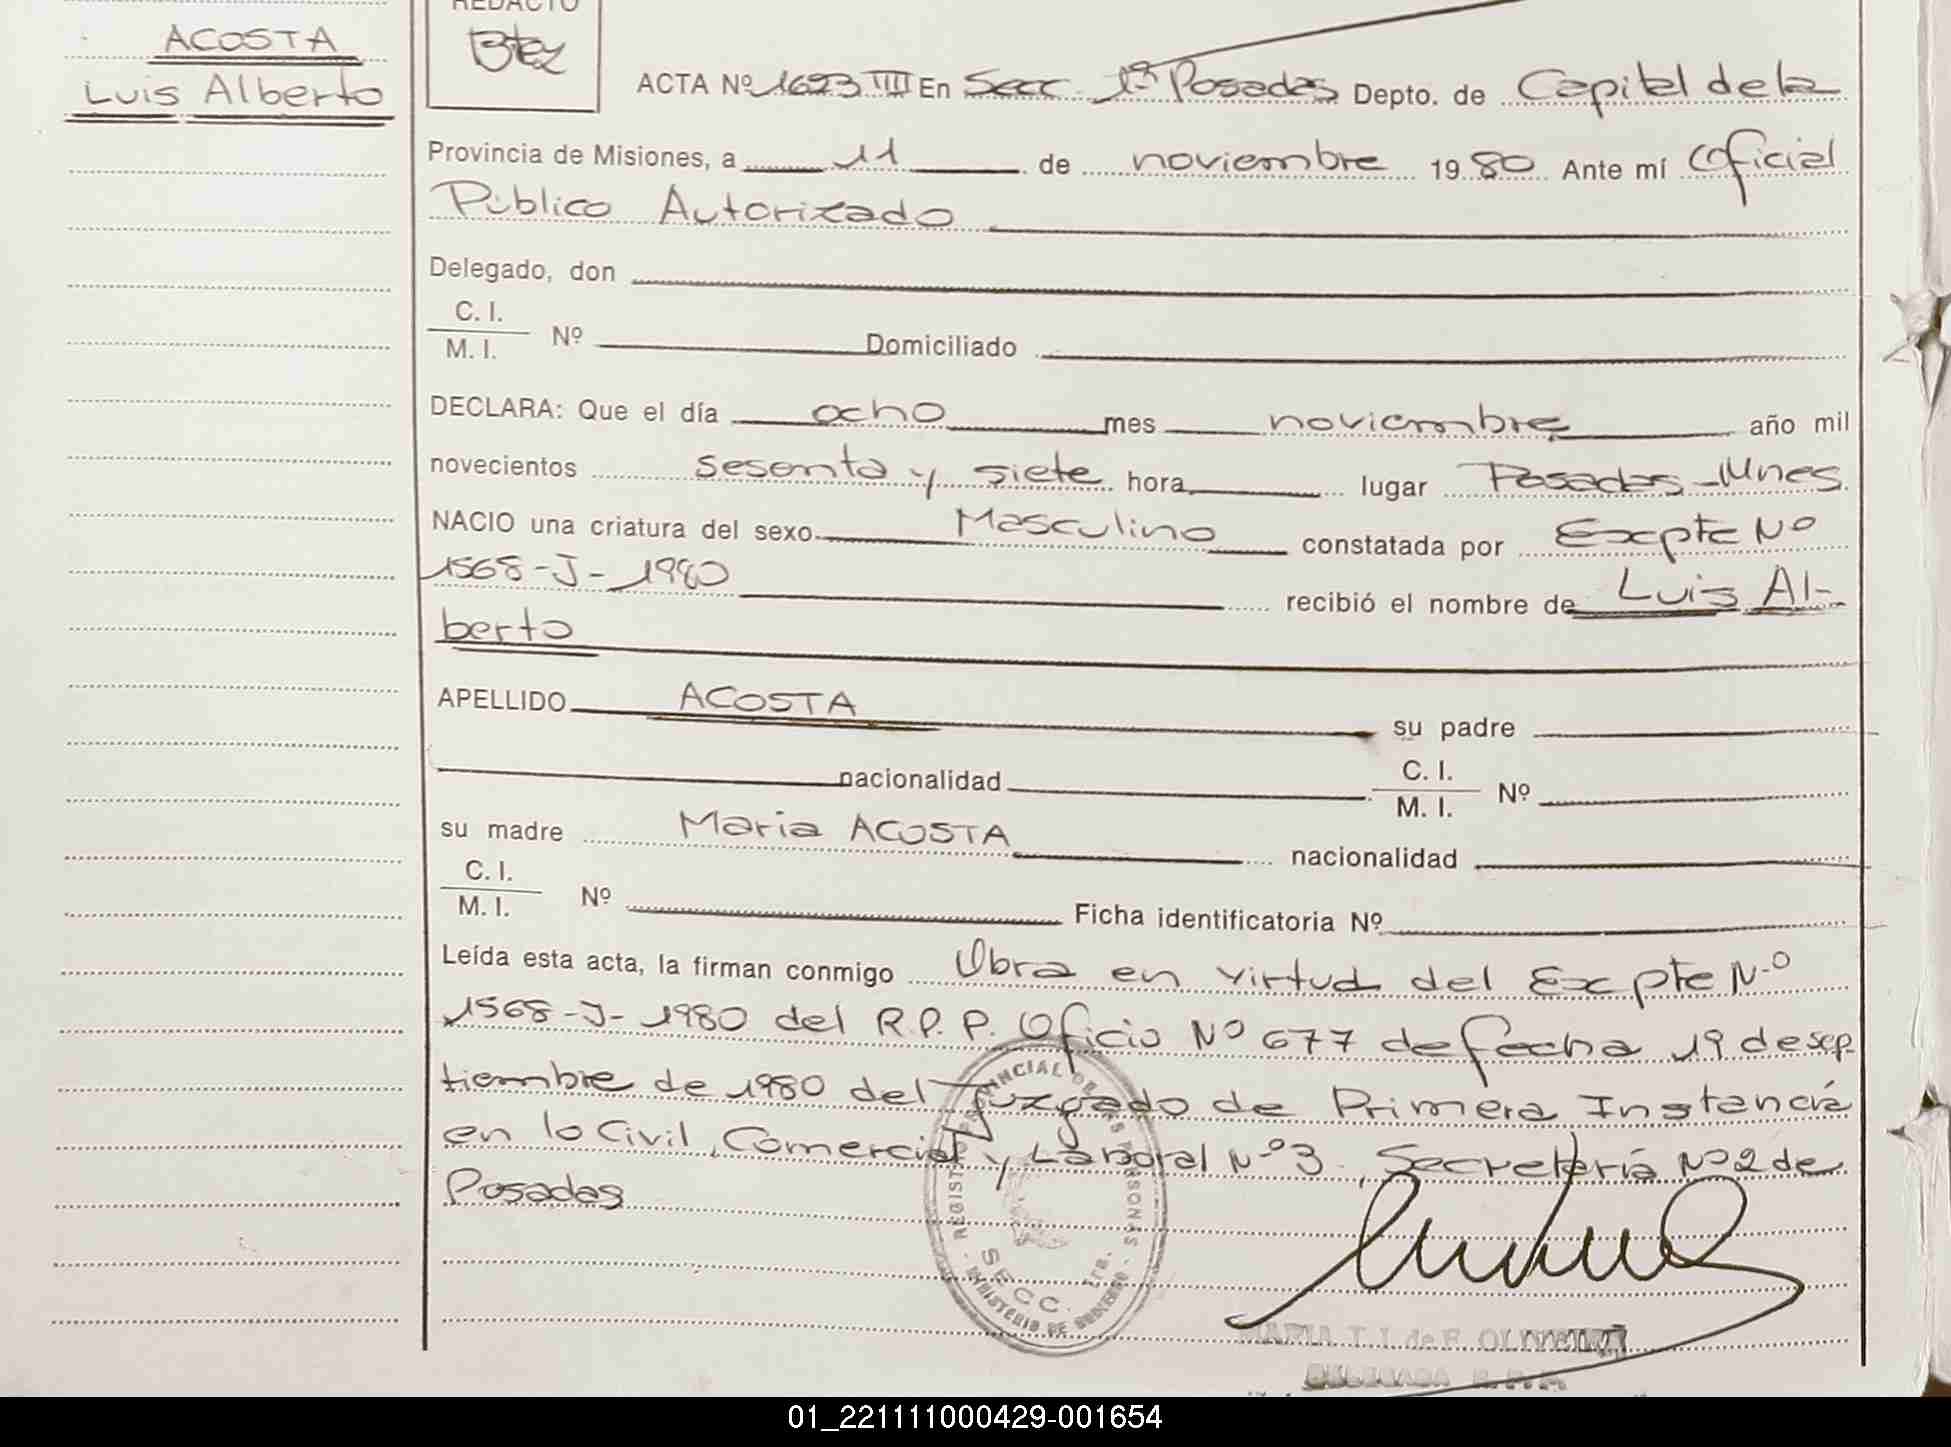 ACOSTA
Luis Alberto
REDACTO
Btez
ACTA Nº 1623 III En Secc. 1ª Posadas Depto. de Capital de la
Provincia de Misiones, a 11 de noviembre 1980 Ante mí Oficial
Público Autorizado
Delegado, don
C. I.
M. I. Nº Domiciliado
DECLARA: Que el día ocho mes noviembre año mil
novecientos sesenta y siete hora lugar Posadas-Mnes
NACIO una criatura del sexo Masculino constatada por Expte Nº
1568-J-1980 recibió el nombre de Luis Al-
berto
APELLIDO ACOSTA su padre
nacionalidad C. I.
M. I. Nº
su madre Maria ACOSTA nacionalidad
C. I.
M. I. Nº Ficha identificatoria Nº
Leída esta acta, la firman conmigo Obra en virtud del Expte Nº
1568-J-1980 del R.P.P. Oficio Nº 677 de fecha 19 de sep-
tiembre de 1980 del Juzgado de Primera Instancia
en lo Civil, Comercial y Laboral Nº 3, Secretaría Nº 2 de
Posadas
REGISTRO PROVINCIAL DE LAS PERSONAS
SECC. 1ra.
MINISTERIO DE GOBIERNO
MARIA T. J. de F. OLIVEIRA
DELEGADA R.P.P.
01_221111000429-001654